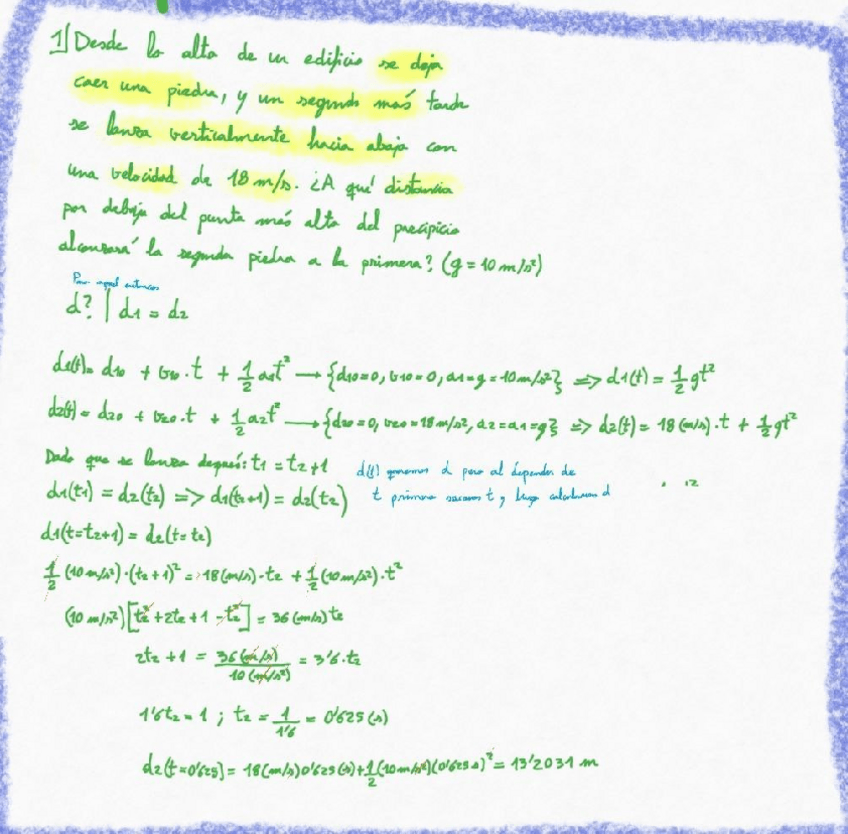 1) Desde lo alto de un edificio se deja
caer una piedra, y un segundo más tarde
se lanza verticalmente hacia abajo con
una velocidad de 18 m/s. ¿A qué distancia
por debajo del punto más alto del precipicio
alcanzará la segunda piedra a la primera? (g = 10 m/s²)
d? | d1 = d2
d1(t) = d10 + v10·t + 1/2 a1t² → {d10=0, v10=0, a1=g=10m/s²} => d1(t) = 1/2 gt²
d2(t) = d20 + v20·t + 1/2 a2t² → {d20=0, v20=18m/s², a2=a1=g} => d2(t) = 18(m/s)·t + 1/2 gt²
Dado que se lanza después: t1 = t2+1
d(t) queremos d pero al depender de
t primero sacamos t y luego calculamos d
d1(t1) = d2(t2) => d1(t2+1) = d2(t2)
d1(t=t2+1) = d2(t=t2)
1/2 (10m/s²)·(t2+1)² = 18(m/s)·t2 + 1/2 (10m/s²)·t²
(10m/s²)[t2²+2t2+1-t2²] = 36(m/s)t2
2t2+1 = 36(m/s)/10(m/s²) = 3'6·t2
1'6t2 = 1 ; t2 = 1/1'6 = 0'625(s)
d2(t=0'625) = 18(m/s)0'625(s)+1/2(10m/s²)(0'625s)² = 13'2031 m